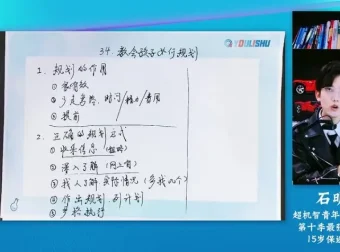 YOULISHU
34. 教会孩子做好规划
1. 规划的作用
① 更有效
② 少走弯路、时间/精力/费用
③ 提前
2. 正确的规划方式
① 收集信息
② 深入了解（网上看）
③ 找人了解实际情况（多找几个）
④ 作出规划、列计划
⑤ 严格执行
石
超机智青年
第十季最
15岁保送